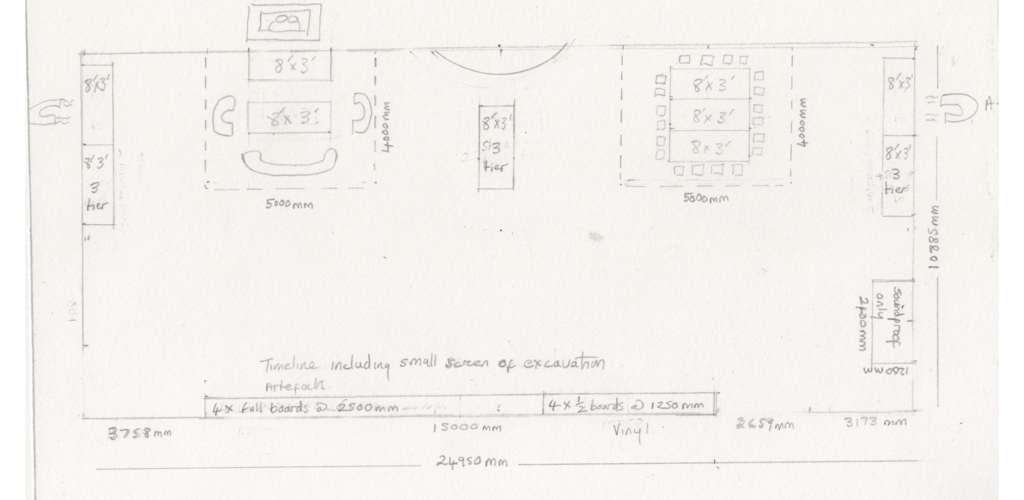 8'x3'
8'x3'
4000mm
5000mm
8'x3'
8'3'
3
tier
8'x3'
3
tier
8'x3'
8'x3'
8'x3'
4000mm
5000mm
8'x3'
8'x3'
3
tier
A
10885mm
soundproof
only
1200mm
Timeline including small screen of excavation
Artefacts
4 x full boards @ 2500mm
4 x ½ boards @ 1250mm
3758mm
15000mm
Vinyl
2659mm
3173 mm
24950mm